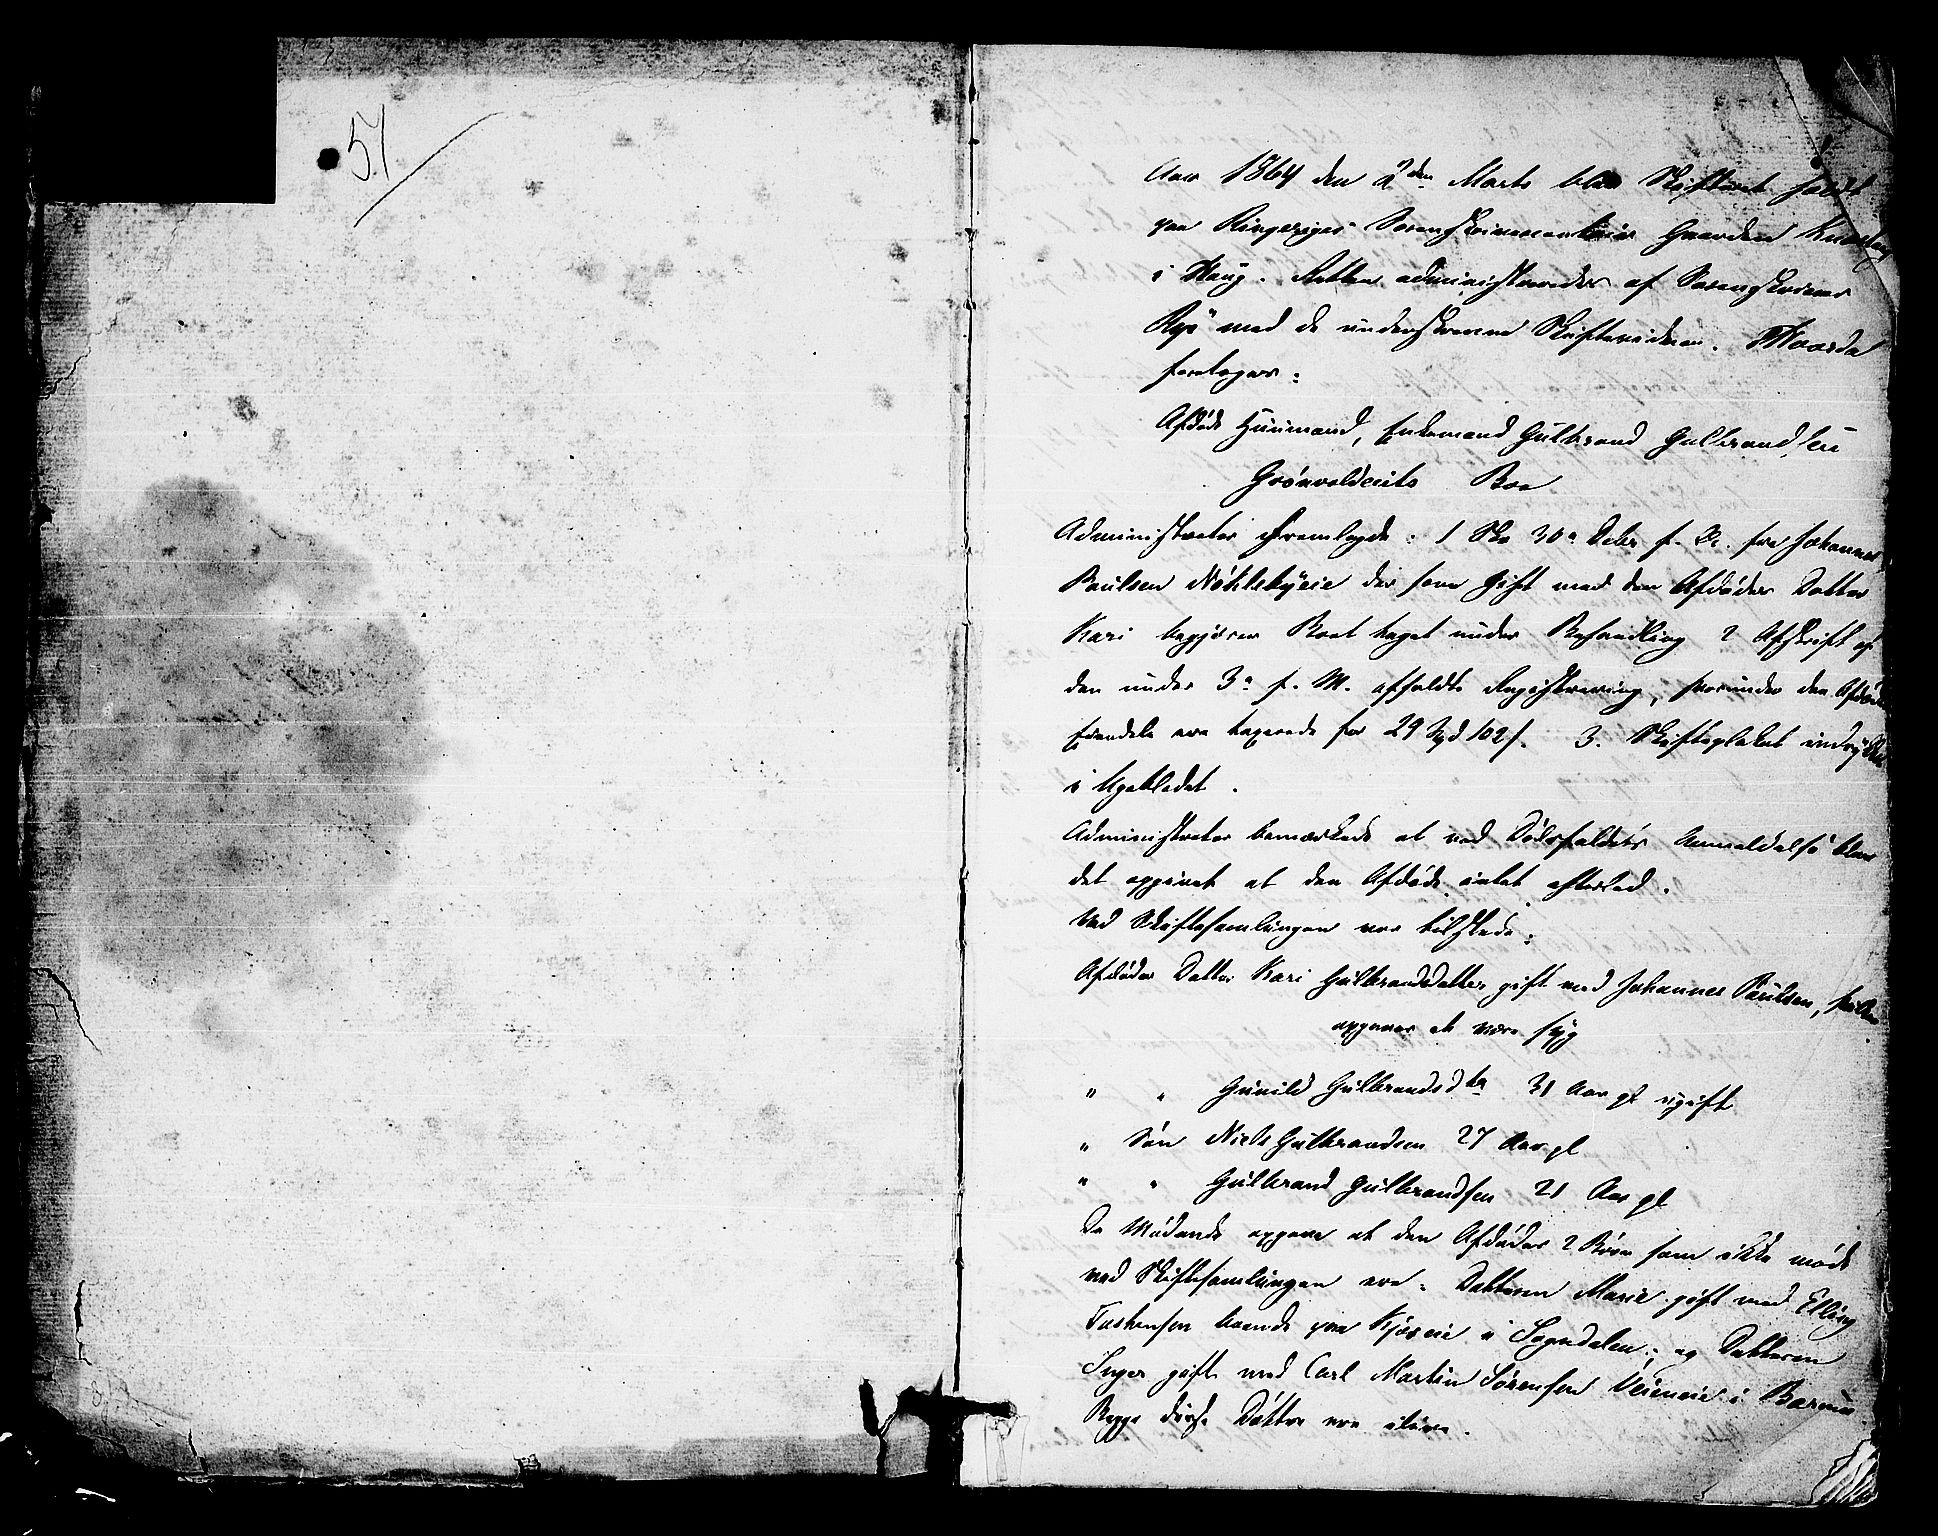 57
Aar 1864 den 2den Marts blev Skifteret holdt
paa Ringeriges Sorenskrivercontoir Gaarden
i Haug. Retten administreredes af Sorenskriver
Rye med de underskrevne Skiftevidner. Hvorda
foretages:
Afdøde Huusmand, Enkemand Gulbrand Gulbrandsen
Grønvoldeiets Boe
Administrator fremlagde: 1 Skr 30e Debr f. A. fra Johannes
Paulsen Nøklebyeie der som gift med den Afdødes Datter
Kari begjærer Boet taget under Behandling 2 Afskrift af
den under 3e f. M. afholdte Registrering, hvorunder den Afdødes
Eiendele ere taxerede for 29 Spd 102 s. 3. Skifteplakat indrykket
i Ugebladet.
Administrator bemærkede at ved Dødsfaldets Anmeldelse blev
det opgivet at den Afdøde intet efterlod.
Ved Skiftesamlingen var tilstede:
Afdødes Datter Kari Gulbrandsdatter gift med Johannes Paulsen, hvilken
opgaves at være syg
" " Gunild Gulbrandsdtr 31 Aar gl ugift
" Søn Niels Gulbrandsen 27 Aar gl
" " Gulbrand Gulbrandsen 21 Aar gl
De Mødende opgave at den Afdødes 2 Børn som ikke mødte
ved Skiftesamlingen ere: Datteren Marie gift med Elling
Torstensen boende paa Kjøseie i Sognedalen; og Datteren
Inger gift med Carl Martin Sørensen Veieneie i Bærum
Begge disse Døttre ere ilive.